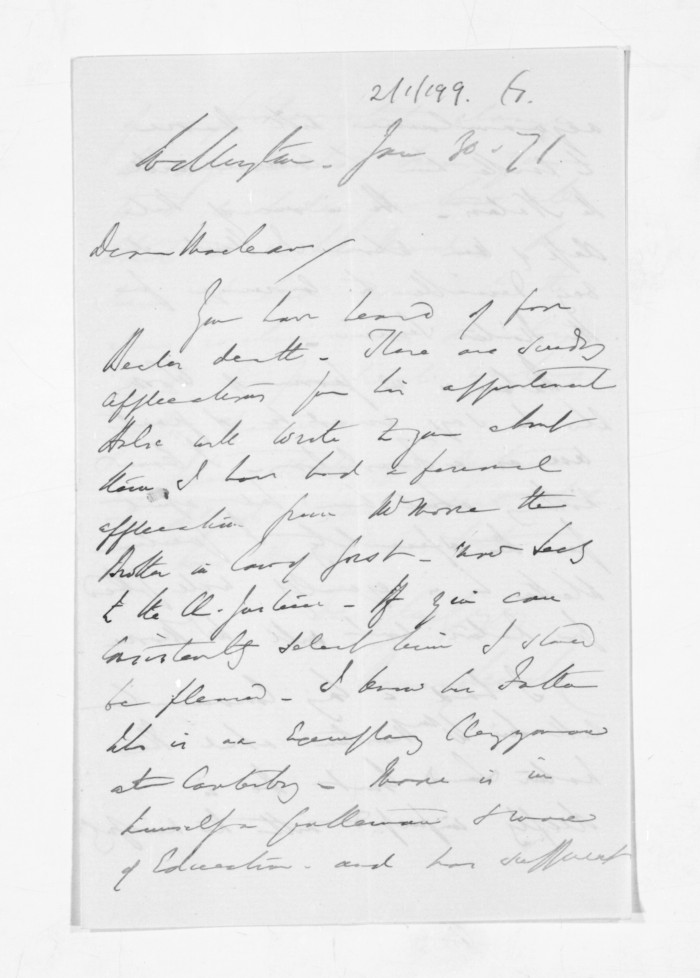 2/1/199. G.
Wellington - Jan 30 - 71.
Dear Maclean/
You have heard of poor
death - There are sundry
applications for his appointment
will write to you about
them, I have had a personal
application from Mr Moore the
Brother in law of - now Secy
to the Ch. Justice - If you can
consistently select him I shd
be pleased - I know his Father
who is an Exemplary Clergyman
at Canterbury - Moore is in
himself a gentleman & man
of Education - and has sufficient